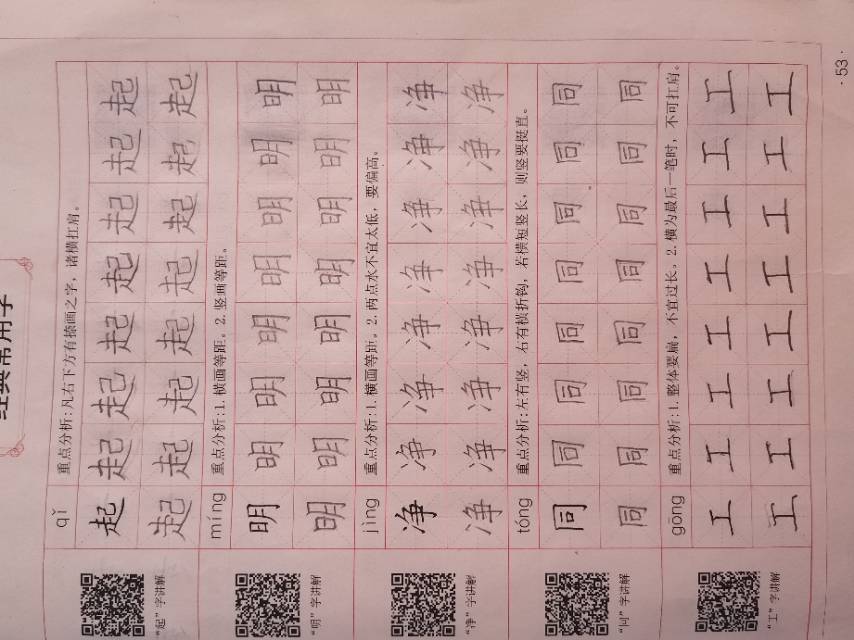 经典常用字
qǐ
重点分析:凡右下方有捺画之字，诸横扛肩。
起起起起起起起起
起起起起起起起起
“起”字讲解
míng
重点分析:1.横画等距。2.竖画等距。
明明明明明明明明
明明明明明明明明
“明”字讲解
jìng
重点分析:1.横画等距。2.两点水不宜太低，要偏高。
净净净净净净净净
净净净净净净净净
“净”字讲解
tóng
重点分析:左有竖，右有横折钩，若横短竖长，则竖要挺直。
同同同同同同同同
同同同同同同同同
“同”字讲解
gōng
重点分析:1.整体要扁，不宜过长。2.横为最后一笔时，不可扛肩。
工工工工工工工工
工工工工工工工工
“工”字讲解
·53·